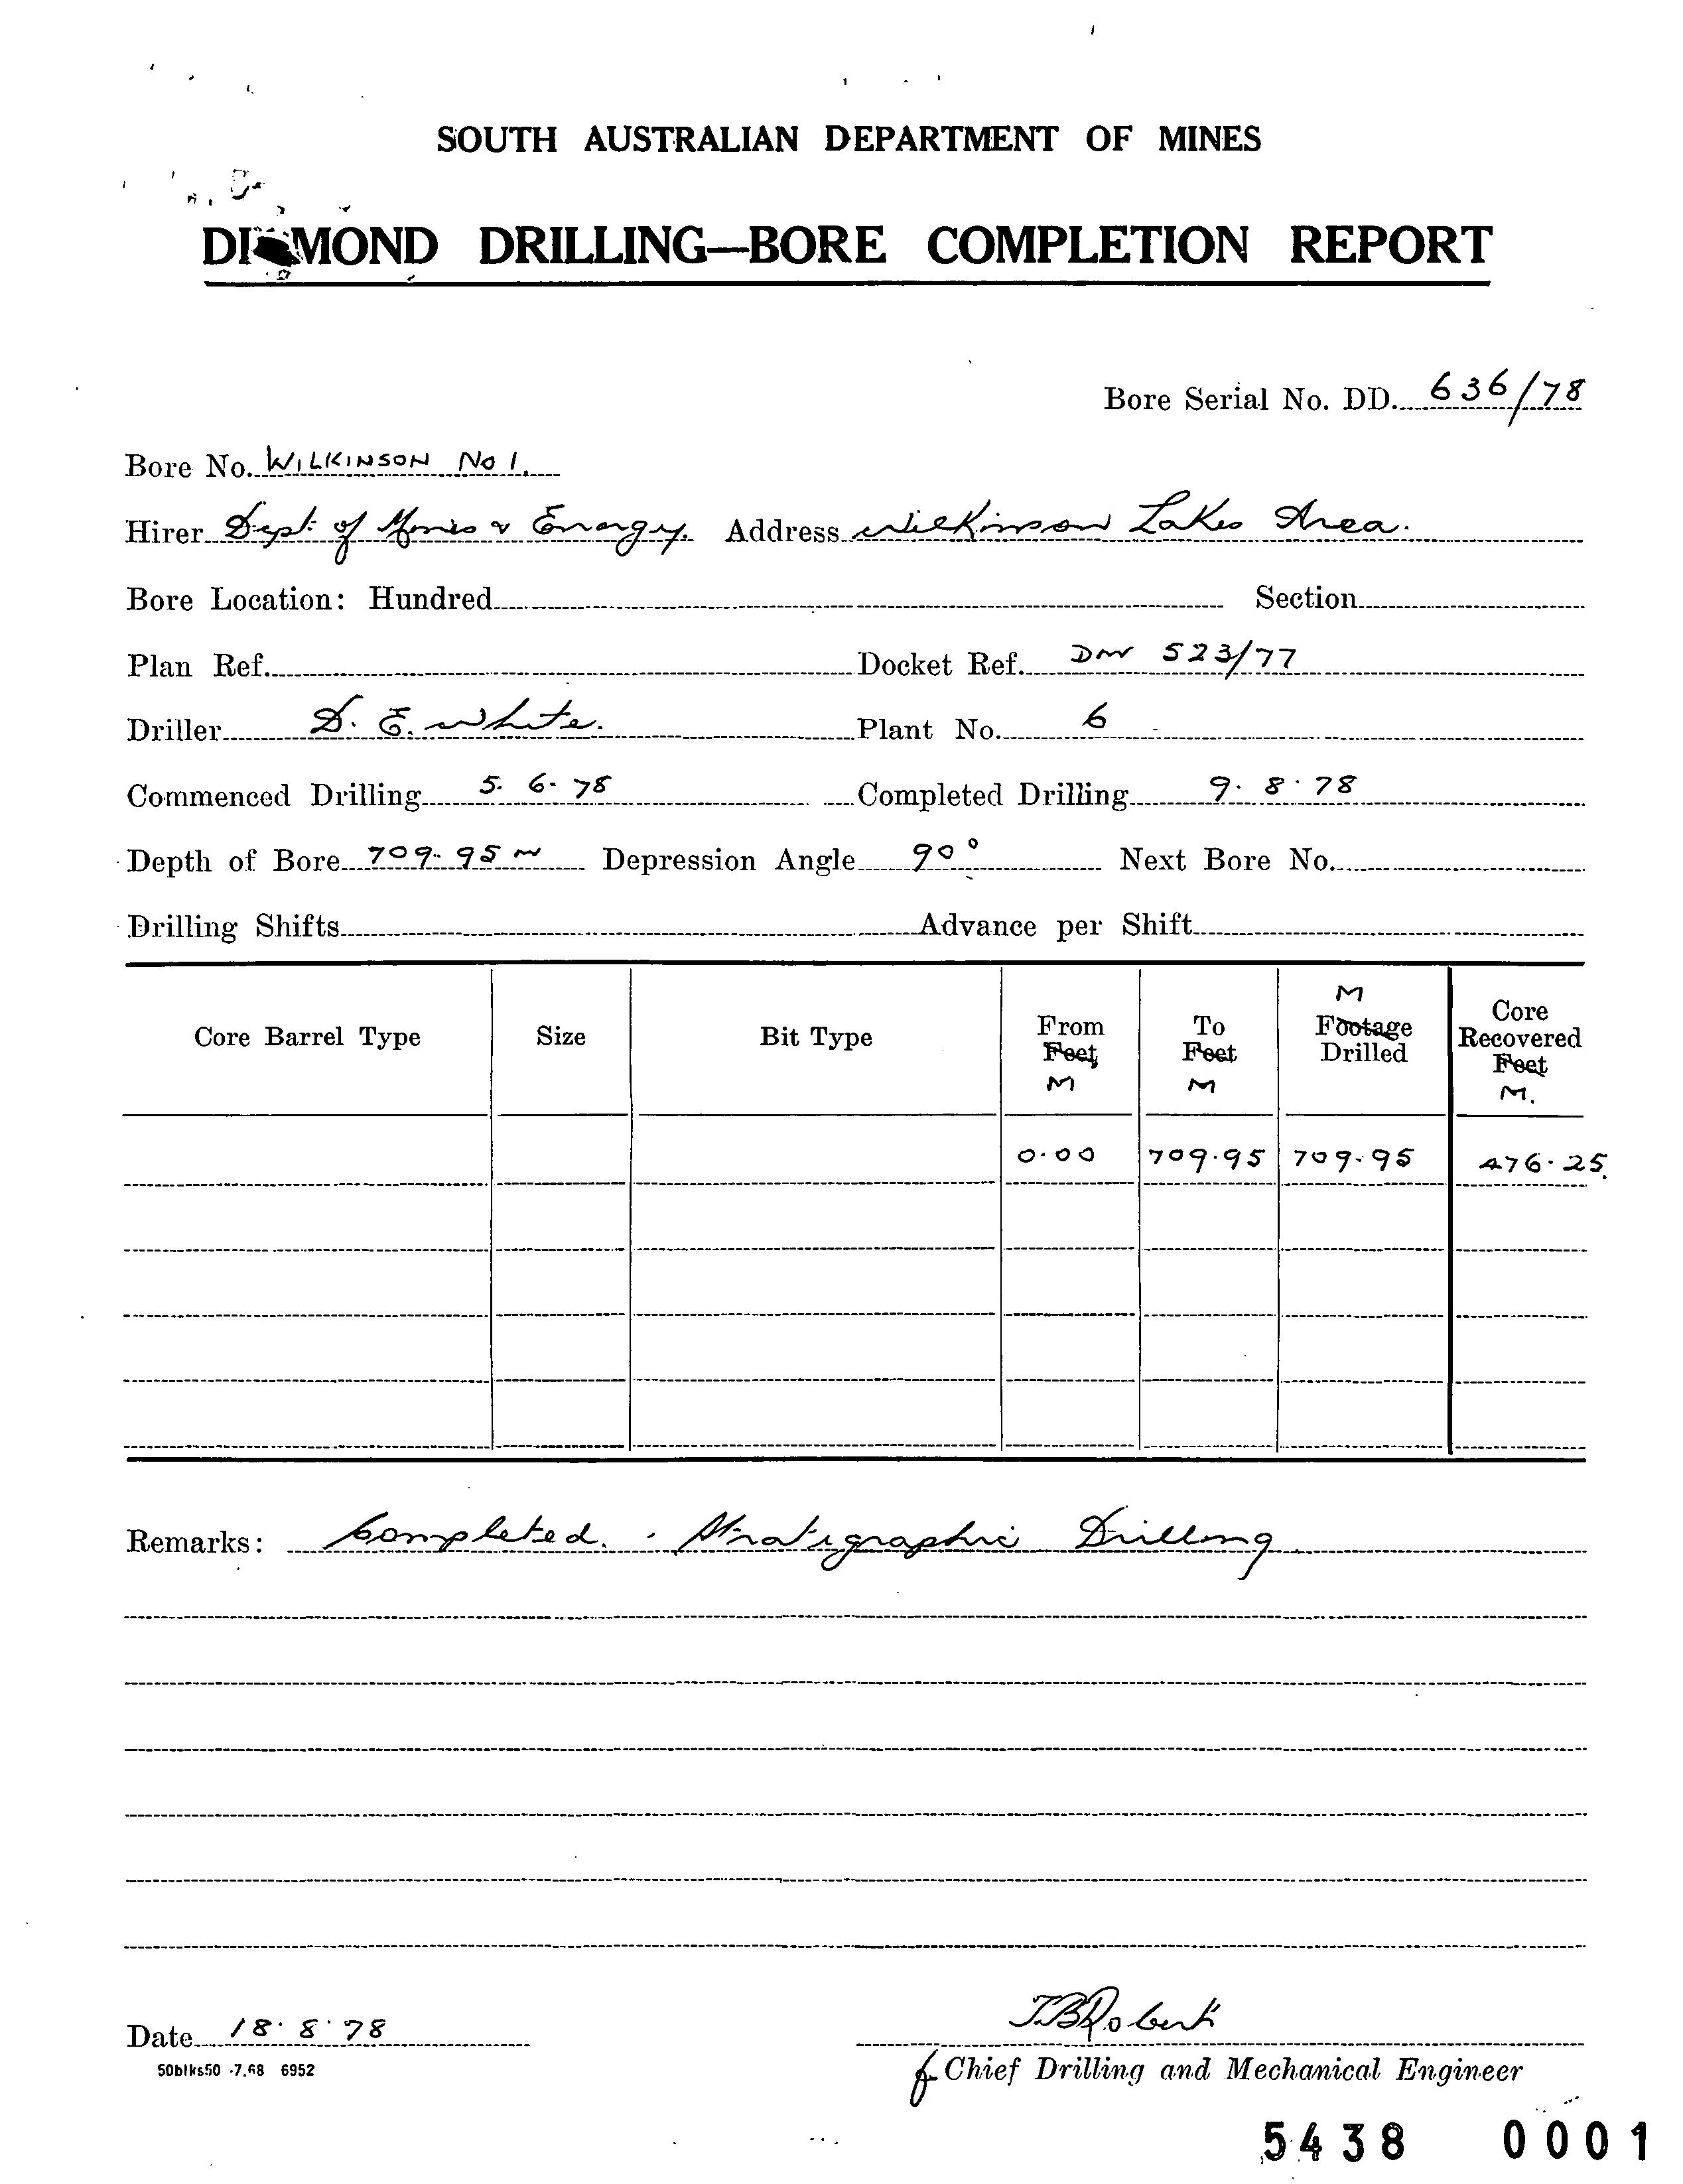 SOUTH AUSTRALIAN DEPARTMENT OF MINES
DIAMOND DRILLING—BORE COMPLETION REPORT
Bore Serial No. DD. 636/78
Bore No. WILKINSON No 1.
Hirer Dept. of Mines & Energy. Address Wilkinson Lakes Area.
Bore Location: Hundred Section
Plan Ref. Docket Ref. DM 523/77
Driller D. E. White. Plant No. 6
Commenced Drilling 5. 6. 78 Completed Drilling 9. 8. 78
Depth of Bore 709.95 M Depression Angle 90° Next Bore No.
Drilling Shifts Advance per Shift
Core Barrel Type Size Bit Type From Feet M To Feet M M Footage Drilled Core Recovered Feet M.
0.00 709.95 709.95 476.25.
Remarks: Completed. Stratigraphic Drilling
Date 18. 8. 78
50blks50 -7.68 6952
f Chief Drilling and Mechanical Engineer
5438 0001